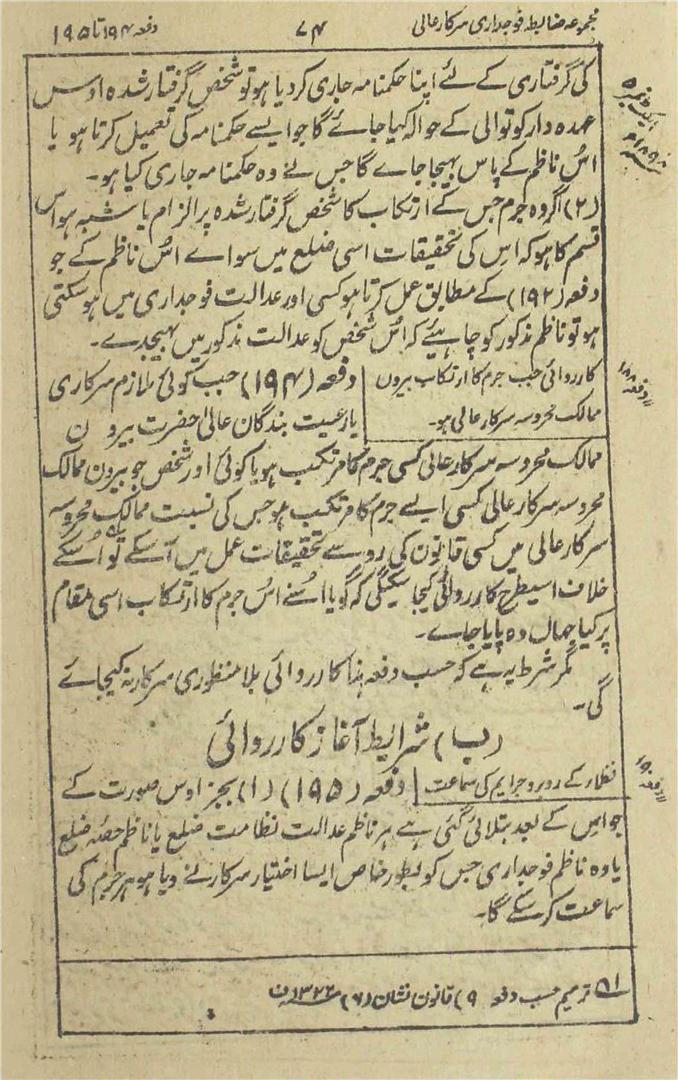 مجموعہ ضابطہ فوجداری سرکار عالی
۷۴
دفعہ ۱۹۴ تا ۱۹۵
کی گرفتاری کے لئے اپنا حکمنامہ جاری کر دیا ہو تو شخص گرفتار شدہ اوس
عہدہ دار کوتوالی کے حوالہ کیا جائے گا جو ایسے حکمنامہ کی تعمیل کرتا ہو یا
اُس ناظم کے پاس بھیجا جاے گا جس نے وہ حکمنامہ جاری کیا ہو۔
(۲) اگر وہ جرم جس کے ارتکاب کا شخص گرفتار شدہ پر الزام یا شبہ ہو اس
قسم کا ہو کہ اس کی تحقیقات اسی ضلع میں سواے اُس ناظم کے جو
دفعہ (۱۹۲) کے مطابق عمل کرتا ہو کسی اور عدالت فوجداری میں ہو سکتی
ہو تو ناظم مذکور کو چاہیئے کہ اُس شخص کو عدالت مذکور میں بھیجدے۔
کارروائی جب جرم کا ارتکاب بیرون
ممالک محروسہ سرکار عالی ہو۔
دفعہ (۱۹۴) جب کوئی ملازم سرکاری
یا رعیت بندگان عالی حضرت بیرون
ممالک محروسہ سرکار عالی کسی جرم کا مرتکب ہو یا کوئی اور شخص جو بیرون ممالک
محروسہ سرکار عالی کسی ایسے جرم کا مرتکب ہو جس کی نسبت ممالک محروسہ
سرکار عالی میں کسی قانون کی رو سے تحقیقات عمل میں آ سکے تو اُسکے
خلاف اسیطرح کارروائی کیجا سکیگی کہ گویا اُسنے اُس جرم کا ارتکاب اسی مقام
پر کیا جہاں وہ پایا جاے۔
مگر شرط یہ ہے کہ حسب دفعہ ہذا کارروائی بلا منظوری سرکار نہ کیجائے
گی۔
(ب) شرایط آغاز کارروائی
نظماء کے روبرو جرایم کی سماعت
دفعہ (۱۹۵) (۱) بجز اوس صورت کے
جو اس کے بعد بتلائی گئی ہے ہر ناظم عدالت نظامت ضلع یا ناظم حصّہ ضلع
یا وہ ناظم فوجداری جس کو بطور خاص ایسا اختیار سرکار نے دیا ہو ہر جرم کی
سماعت کر سکے گا۔
۵۱ ترمیم حسب دفعہ (۹) قانون نشان (۶) ۱۳۲۲ف